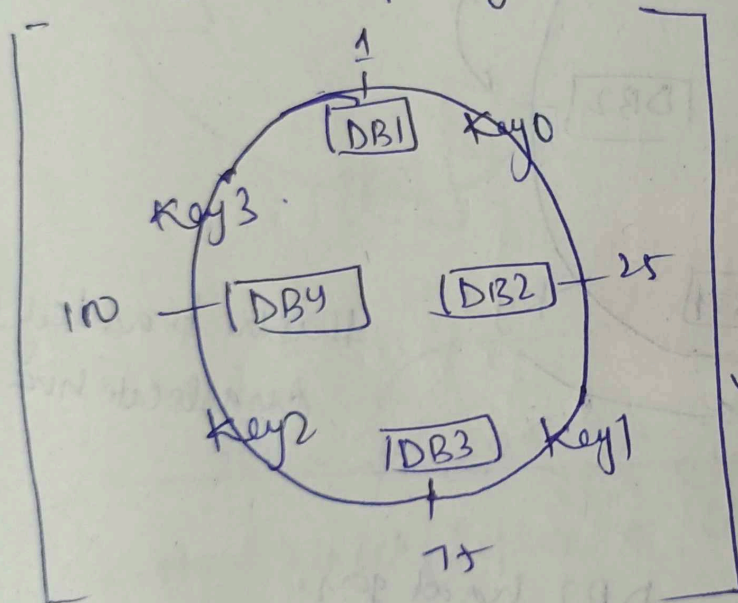 1
DB1
Key0
Key3
100
DB4
DB2
25
Key2
DB3
Key1
75